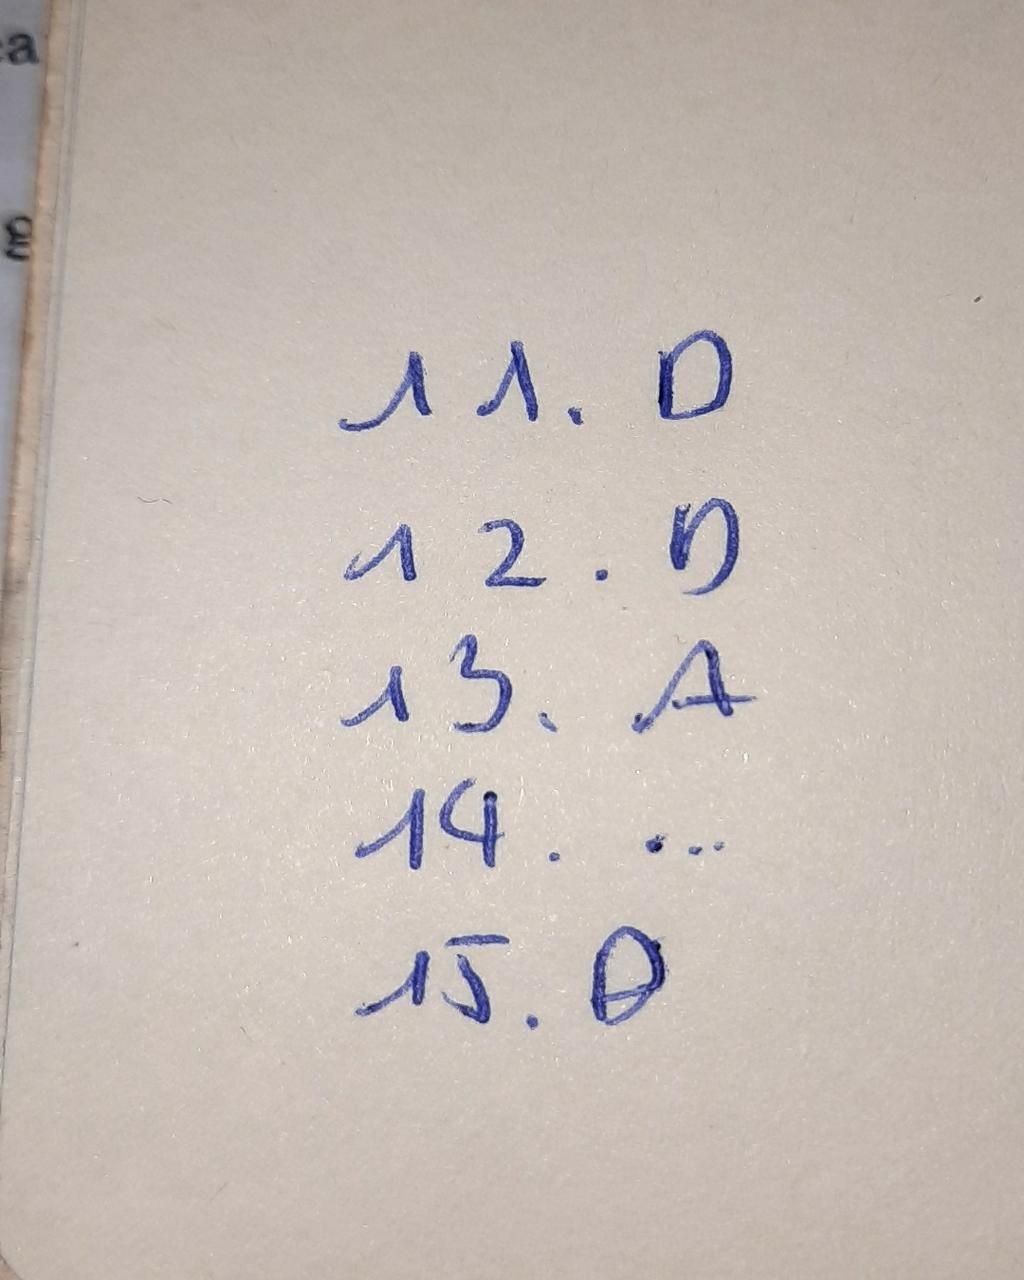 11. D
12. D
13. A
14. ...
15.
ea
g